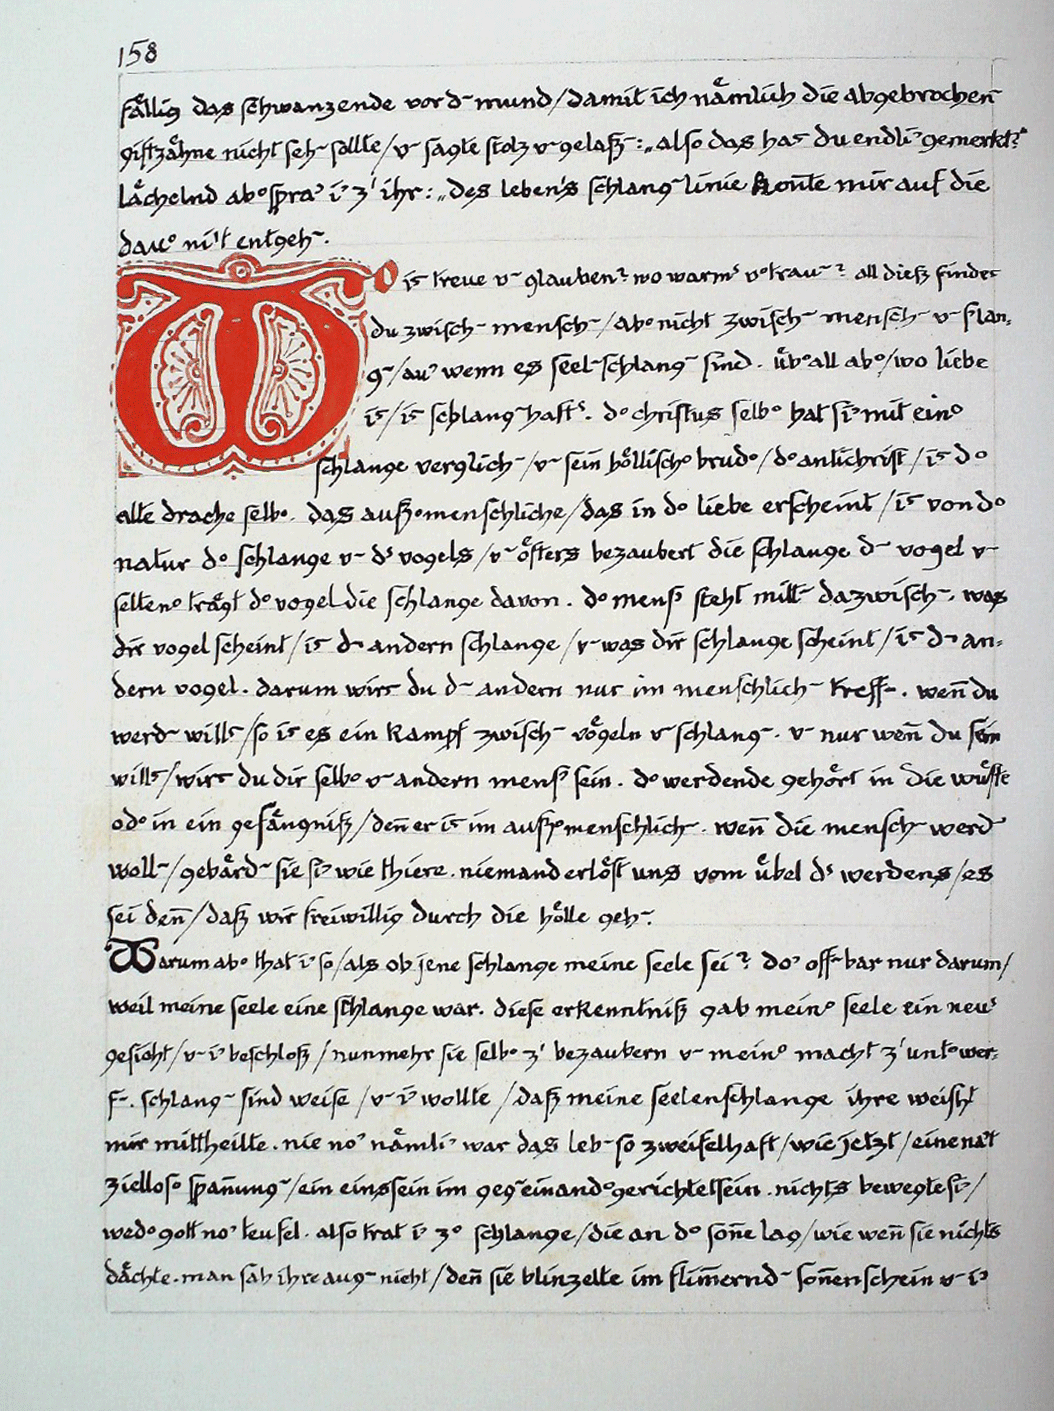 158
fällig das schwanzende vor d- mund/damit ich nämlich die abgebrochen-
giftzähne nicht seh- sollte/v- sagte stolz v- gelaß-: „also das has du endli' gemerkt?"
lächelnd ab° spra' i' z' ihr: „des leben's schlang-linie konnte mir auf die
dau° ni't entgeh-.
Wo is treue v- glauben? wo warm' v°trau-? all dieß findes
du zwisch- mensch-/ab° nicht zwisch- mensch- v- slan=
g-/au' wenn es seel-schlang- sind. üb°all ab°/wo liebe
is/is schlang-haft'. d° christus selb° hat si' mit ein°
schlange verglich-/v- sein höllisch° brud°/d° antichrist/is d°
alte drache selb°. das auß°menschliche/das in d° liebe erscheint/is von d°
natur d° schlange v- d' vogels/v- öfters bezaubert die schlange d- vogel v-
selten° trägt d° vogel die schlange davon. d° mens' steht mitt- dazwisch-. was
dir vogel scheint/is d- andern schlange/v- was dir schlange scheint/is d- an=
dern vogel. darum wirs du d- andern nur im menschlich- treff-. wenn̄ du
werd- wills/so is es ein kampf zwisch- vögeln v- schlang-. v- nur wen̄ du sein
wills/wirs du dir selb° v- andern mens' sein. d° werdende gehört in die wüste
od° in ein gefängniß/den̄ er is im auß°menschlich-. wen̄ die mensch- werd-
woll-/gebärd- sie si' wie thiere. niemand erlöst uns vom übel d' werdens/es
sei den̄/daß wir freiwillig durch die hölle geh-.
Warum ab° that i' so/als ob jene schlange meine seele sei? do' off-bar nur darum/
weil meine seele eine schlange war. diese erkenntniß gab mein° seele ein neu'
gesicht/v- i' beschloß/nunmehr sie selb° z' bezaubern v- mein° macht z' unt°wer=
f-. schlang- sind weise/v- i' wollte/daß meine seelenschlange ihre weisht
mir mittheilte. nie no' nämli' war das leb- so zweifelhaft/wie jetzt/eine na't
ziellos° span̄ung-/ein einssein im geg-einand°gerichtetsein. nichts bewegte si'/
wed° gott no' teufel. also trat i' z° schlange/die an d° son̄e lag/wie wen̄ sie nichts
dächte. man sah ihre aug- nicht/den̄ sie blinzelte im flim̄ernd- son̄enschein v- i'